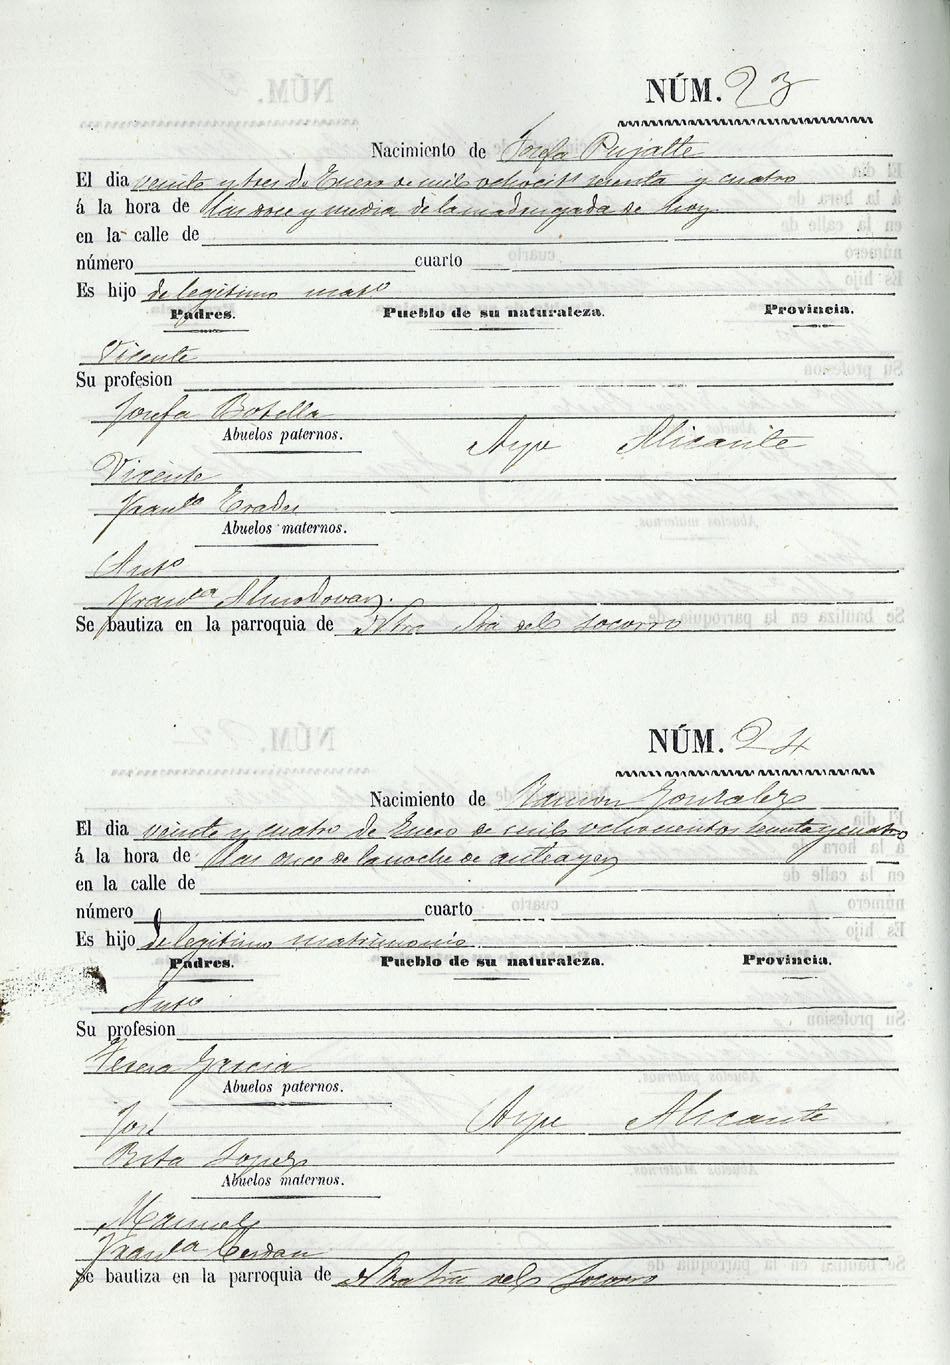 NÚM. 23
Nacimiento de Josefa Pujalte
El dia veinte y tres de Enero de mil ochocits setenta y cuatro
á la hora de las doce y media de la madrugada de hoy
en la calle de
número cuarto
Es hijo de legitimo mato
Padres. Pueblo de su naturaleza. Provincia.
Vicente
Su profesion
Josefa Botella
Abuelos paternos.
Aspe Alicante
Vicente
Franca Erades
Abuelos maternos.
Anto
Franca Almodovar.
Se bautiza en la parroquia de Ntra Sra del Socorro
NÚM. 24
Nacimiento de Ramon Gonzalez
El dia veinte y cuatro de Enero de mil ochocientos setenta y cuatro
á la hora de las once de la noche de anteayer
en la calle de
número cuarto
Es hijo de legitimo matrimonio
Padres. Pueblo de su naturaleza. Provincia.
Anto
Su profesion
Teresa Garcia
Abuelos paternos.
José Aspe Alicante
Rita Lopez
Abuelos maternos.
Manuel
Franca Cerdan
Se bautiza en la parroquia de Ntra Sra del Socorro